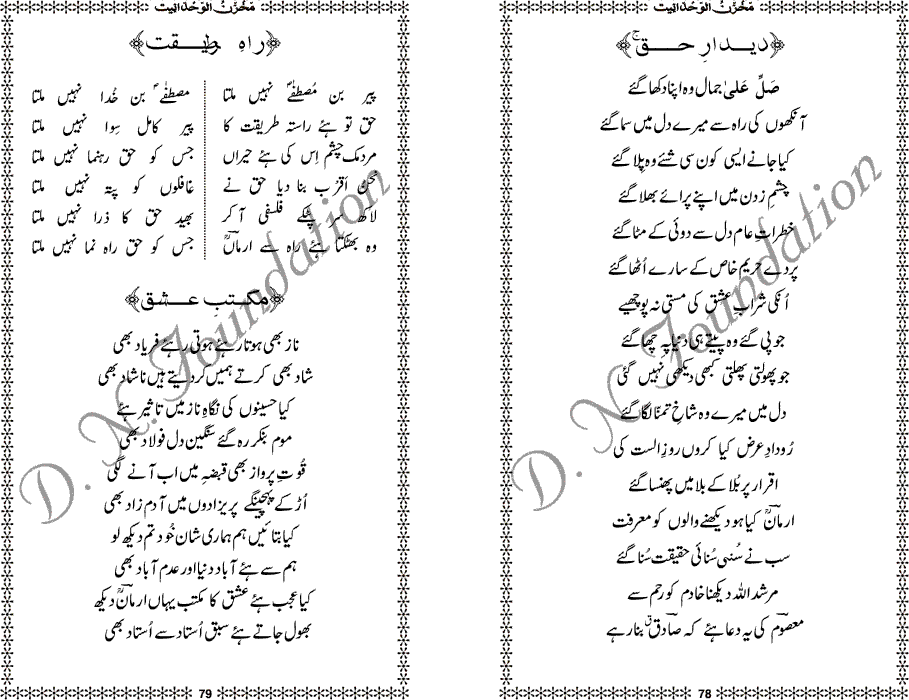 مخزن الوحدانیت
﴿دیدارِ حق﴾
صَلِّ عَلیٰ جمال وہ اپنا دکھا گئے
آنکھوں کی راہ سے میرے دل میں سما گئے
کیا جانے ایسی کون سی شئے وہ پلا گئے
چشمِ زدن میں اپنے پرائے بھلا گئے
خطراتِ عام دل سے دوئی کے مٹا گئے
پردے حریمِ خاص کے سارے اُٹھا گئے
اُنکی شرابِ عشق کی مستی نہ پوچھیے
جو پی گئے وہ پیتے ہی دنیا پہ چھا گئے
جو پھولتی پھلتی کبھی دیکھی نہیں گئی
دل میں میرے وہ شاخِ تمنّا لگا گئے
رُودادِ عرض کیا کروں روزِ الست کی
اقرار پر بُلا کے بلا میں پھنسا گئے
ارمانؔ کیا ہو دیکھنے والوں کو معرفت
سب نے سُنی سُنائی حقیقت سُنا گئے
مرشد اللہ دیکھنا خادم کو رحم سے
معصومؔ کی یہ دعا ہئے کہ صادق بنا رہے
78
مخزن الوحدانیت
﴿راہِ طریقت﴾
پیر بن مُصطفےٰؐ نہیں ملتا
مصطفےٰؐ بن خُدا نہیں ملتا
حق تو ہئے راستہ طریقت کا
پیر کامل سِوا نہیں ملتا
مردمک چشم اِس کی ہئے حیراں
جس کو حق رہنما نہیں ملتا
نحن اقرب بنا دیا حق نے
غافلوں کو پتہ نہیں ملتا
لاکھ سر پٹکے فلسفی آ کر
بھید حق کا ذرا نہیں ملتا
وہ بھٹکتا ہئے راہ سے ارمانؔ
جس کو حق راہ نما نہیں ملتا
﴿مکتبِ عشق﴾
ناز بھی ہوتا رہئے ہوتی رہئے فریاد بھی
شاد بھی کرتے ہمیں کر دیتے ہیں ناشاد بھی
کیا حسینوں کی نگاہِ ناز میں تاثیر ہئے
موم بنکر رہ گئے سنگین دل فولاد بھی
قُوتِ پرواز بھی قبضہ میں اب آنے لگی
اُڑ کے پہنچیںگے پریزادوں میں آدم زاد بھی
کیا بتائیں ہم ہماری شان خُود تم دیکھ لو
ہم سے ہئے آباد دنیا اور عدم آباد بھی
کیا عجب ہئے عشق کا مکتب یہاں ارمانؔ دیکھ
بھول جاتے ہئے سبق اُستاد سے اُستاد بھی
79
D. N. Foundation
D. N. Foundation